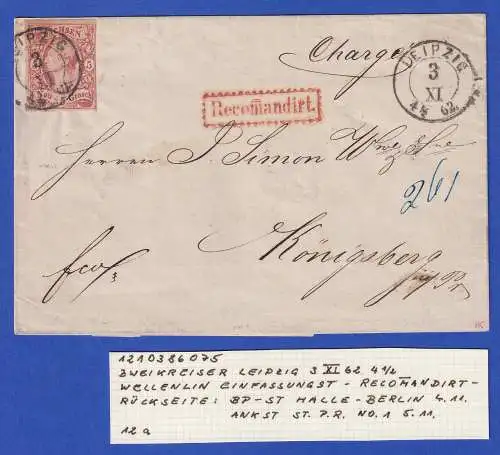 SACHSEN
LEIPZIG
3
Charge
LEIPZIG
3
XI
4½ 62.
Recom̄andirt.
Herrn P. Simon Wwe &
261
Königsberg
fco
1210386075
ZWEIKREISER LEIPZIG 3 XI 62 4½
WELLENLIN EINFASSUNGST - RECOM̄ANDIRT -
RÜCKSEITE: BP-ST HALLE-BERLIN 4.11.
ANKST ST. P.R. NO.1 5.11.
12a